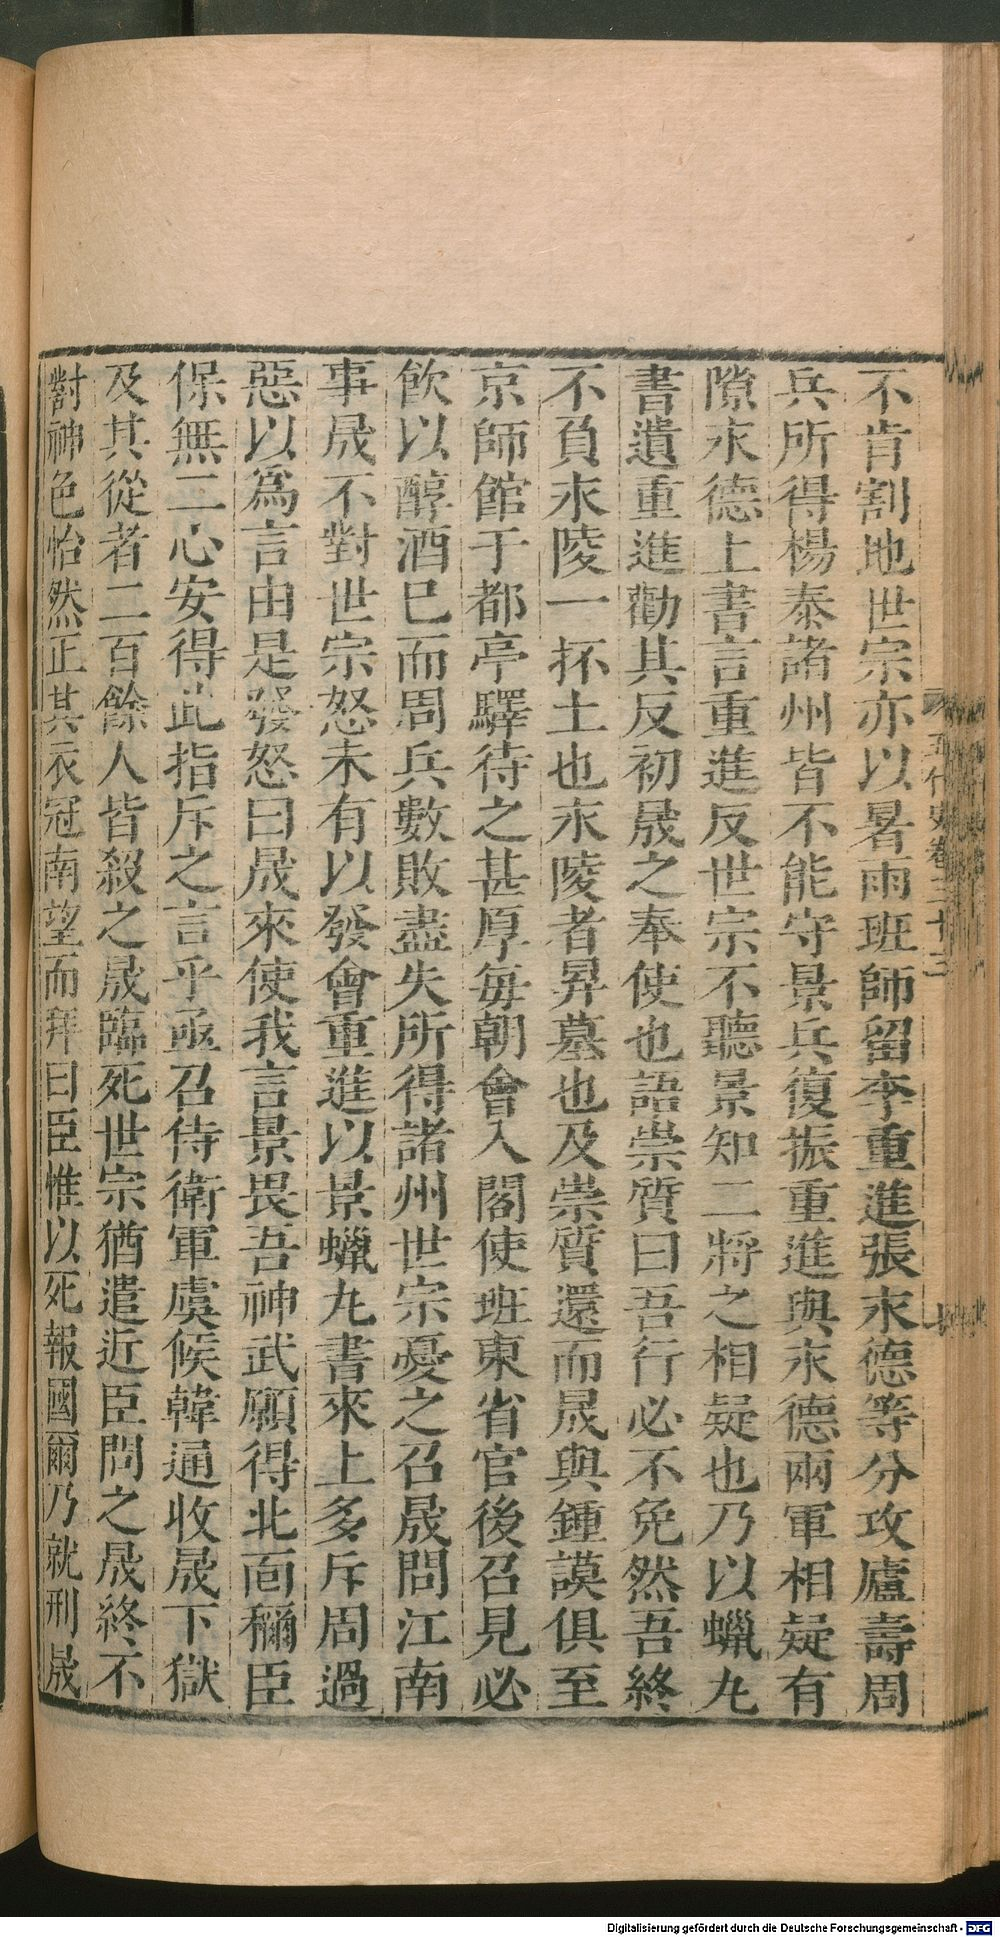 不肯割地世宗亦以暑雨班師留李重進張永德等分攻廬壽周
兵所得楊泰諸州皆不能守景兵復振重進與永德兩軍相疑有
隙永德上書言重進反世宗不聽景知二將之相疑也乃以蠟丸
書遺重進勸其反初晟之奉使也語崇質曰吾行必不免然吾終
不負永陵一抔土也永陵者昇墓也及崇質還而晟與鍾謨俱至
京師館于都亭驛待之甚厚每朝會入閣使班東省官後召見必
飲以醇酒已而周兵數敗盡失所得諸州世宗憂之召晟問江南
事晟不對世宗怒未有以發會重進以景蠟丸書來上多斥周過
惡以爲言由是發怒曰晟來使我言景畏吾神武願得北面稱臣
保無二心安得此指斥之言乎亟召侍衛軍虞候韓通收晟下獄
及其從者二百餘人皆殺之晟臨死世宗猶遣近臣問之晟終不
對神色怡然正其衣冠南望而拜曰臣惟以死報國爾乃就刑晟
五代史卷三十三
Digitalisierung gefördert durch die Deutsche Forschungsgemeinschaft - DFG